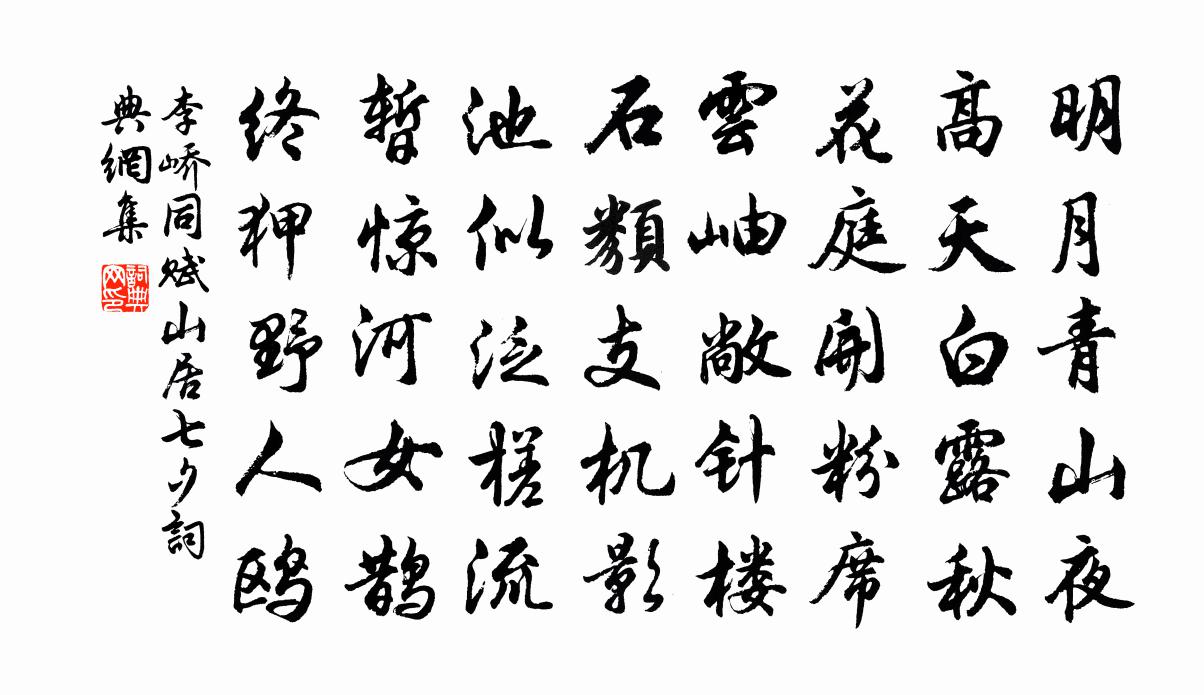 明月青山夜
高天白露秋
花庭開粉席
雲岫敞针楼
石類支机影
池似泛槎流
暫惊河女鹊
终狎野人鸥
李嶠同赋山居七夕詞
典網集
詞典网印